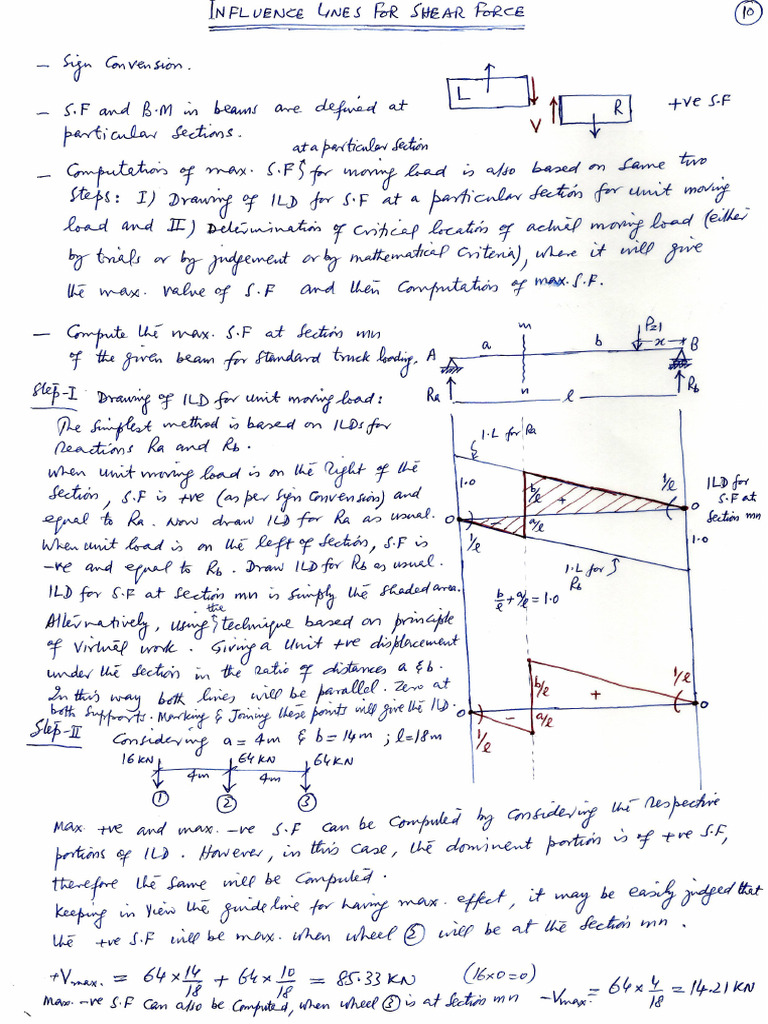 INFLUENCE LINES FOR SHEAR FORCE
10
- Sign Convension.
L
V
R
+ve S.F
- S.F and B.M in beams are defined at
particular sections.
at a particular section
- Computation of max. S.F for moving load is also based on same two
steps: I) Drawing of ILD for S.F at a particular section for unit moving
load and II) Determination of critical location of actual moving load (either
by trials or by judgement or by mathematical criteria), where it will give
the max. value of S.F and then computation of max. S.F.
- Compute the max. S.F at section mn
of the given beam for standard truck loading.
A
a
m
n
b
P=1
x
B
Ra
l
Rb
Step-I Drawing of ILD for unit moving load:
The simplest method is based on ILDs for
reactions Ra and Rb.
when unit moving load is on the right of the
section, S.F is +ve (as per sign convension) and
equal to Ra. Now draw ILD for Ra as usual.
when unit load is on the left of section, S.F is
-ve and equal to Rb. Draw ILD for Rb as usual.
ILD for S.F at section mn is simply the shaded area.
Alternatively, using the technique based on principle
of virtual work. Giving a unit +ve displacement
under the section in the ratio of distances a & b.
In this way both lines will be parallel. Zero at
both supports. Marking & Joining these points will give the ILD.
I.L for Ra
1.0
b/l
+
1/l
ILD for
S.F at
section mn
0
-
a/l
0
1/l
1.0
I.L for
Rb
b/l + a/l = 1.0
b/l
+
1/l
0
-
a/l
0
1/l
Step-II
Considering a = 4m & b = 14m ; l=18m
16 KN 64 KN 64 KN
4m 4m
1 2 3
Max. +ve and max. -ve S.F can be computed by considering the respective
portions of ILD. However, in this case, the dominent portion is of +ve S.F,
therefore the same will be computed.
Keeping in view the guideline for having max. effect, it may be easily judged that
the +ve S.F will be max. when wheel ② will be at the section mn.
+Vmax. = 64 x 14/18 + 64 x 10/18 = 85.33 KN (16x0=0)
Max. -ve S.F can also be computed, when wheel ③ is at section mn -Vmax. = 64 x 4/18 = 14.21 KN